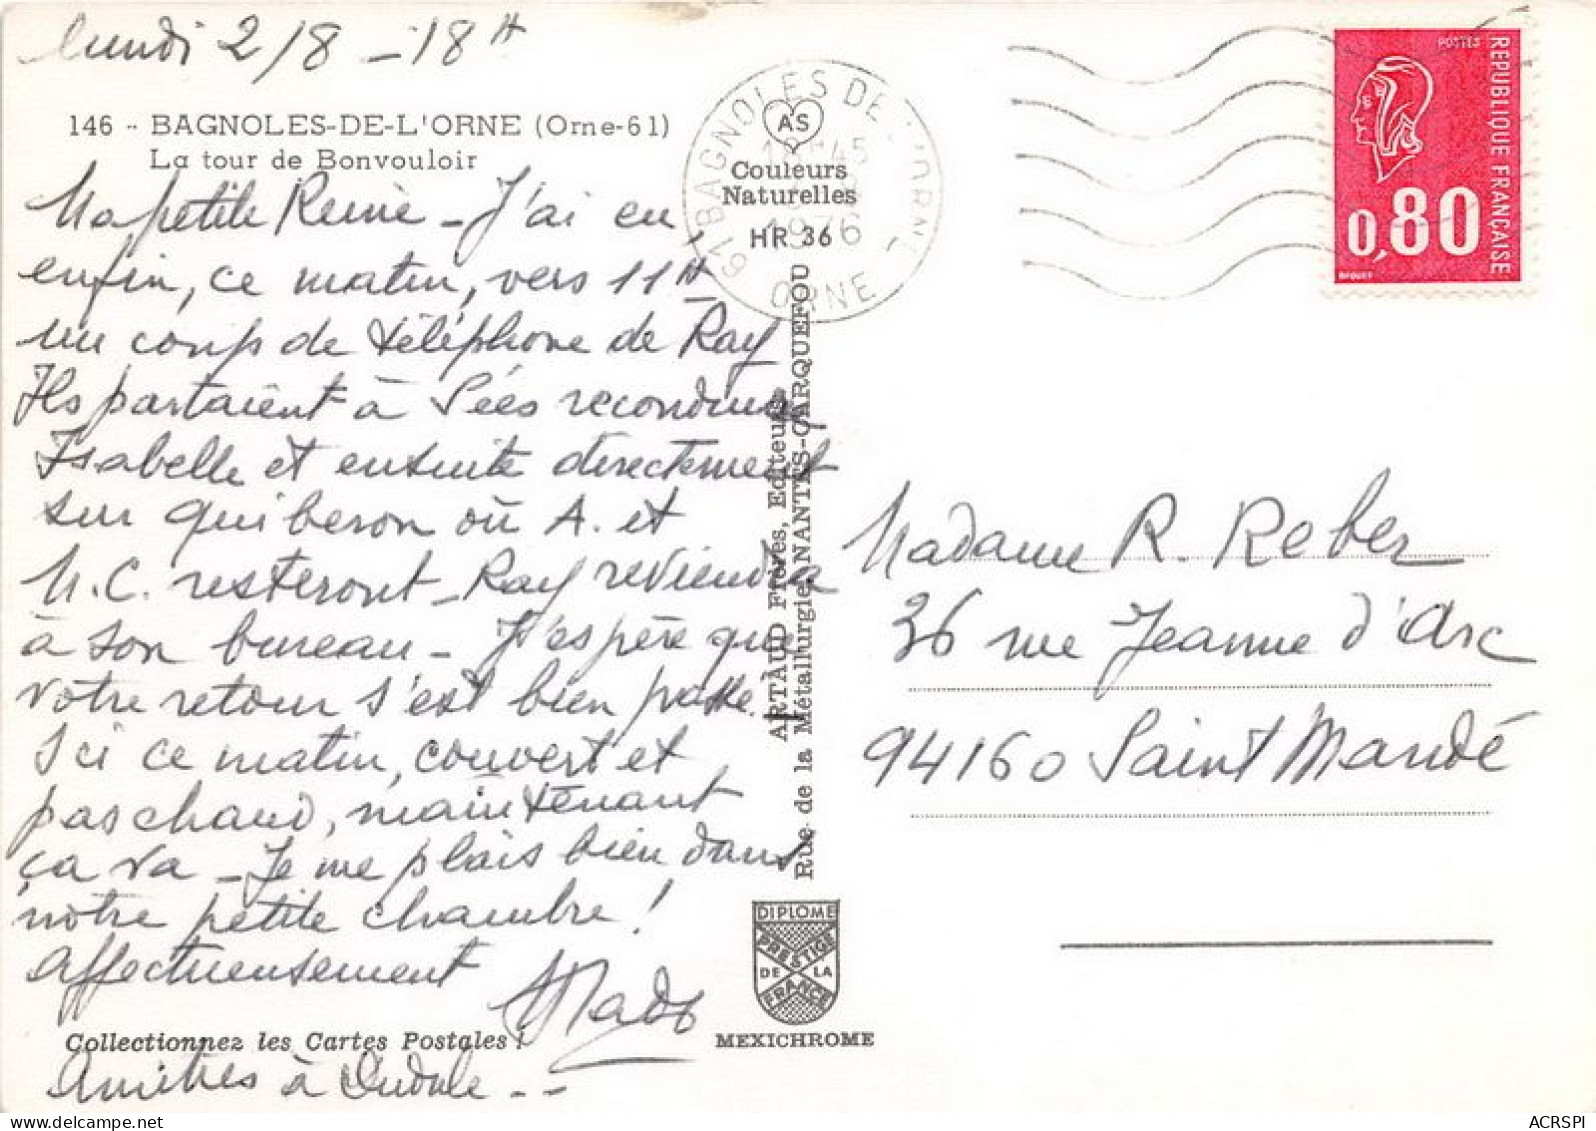 lundi 2/8 - 18H
146 - BAGNOLES-DE-L'ORNE (Orne-61)
La tour de Bonvouloir
Ma petite Reine - J'ai eu,
enfin, ce matin, vers 11H
un coup de téléphone de Ray
Ils partaient à Sées reconduire
Isabelle et ensuite directement
sur Quiberon où A. et
M.C. resteront - Ray reviendra
à son bureau - J'espère que
votre retour s'est bien passé.
Ici ce matin, couvert et
pas chaud, maintenant
ça va - Je me plais bien dans
notre petite chambre !
Affectueusement
Mado
Collectionnez les Cartes Postales !
Amitiés à Dudule - -
61 BAGNOLES DE L'ORNE
ORNE
1976
AS
Couleurs
Naturelles
HR 36
ARTAUD Frères, Editeurs
Rue de la Métallurgie, NANTES-CARQUEFOU
DIPLOME
PRESTIGE
DE LA
FRANCE
MEXICHROME
POSTES
RÉPUBLIQUE FRANÇAISE
0,80
BEQUET
Madame R. Reber
36 rue Jeanne d'Arc
94160 Saint Mandé
ACRSPI